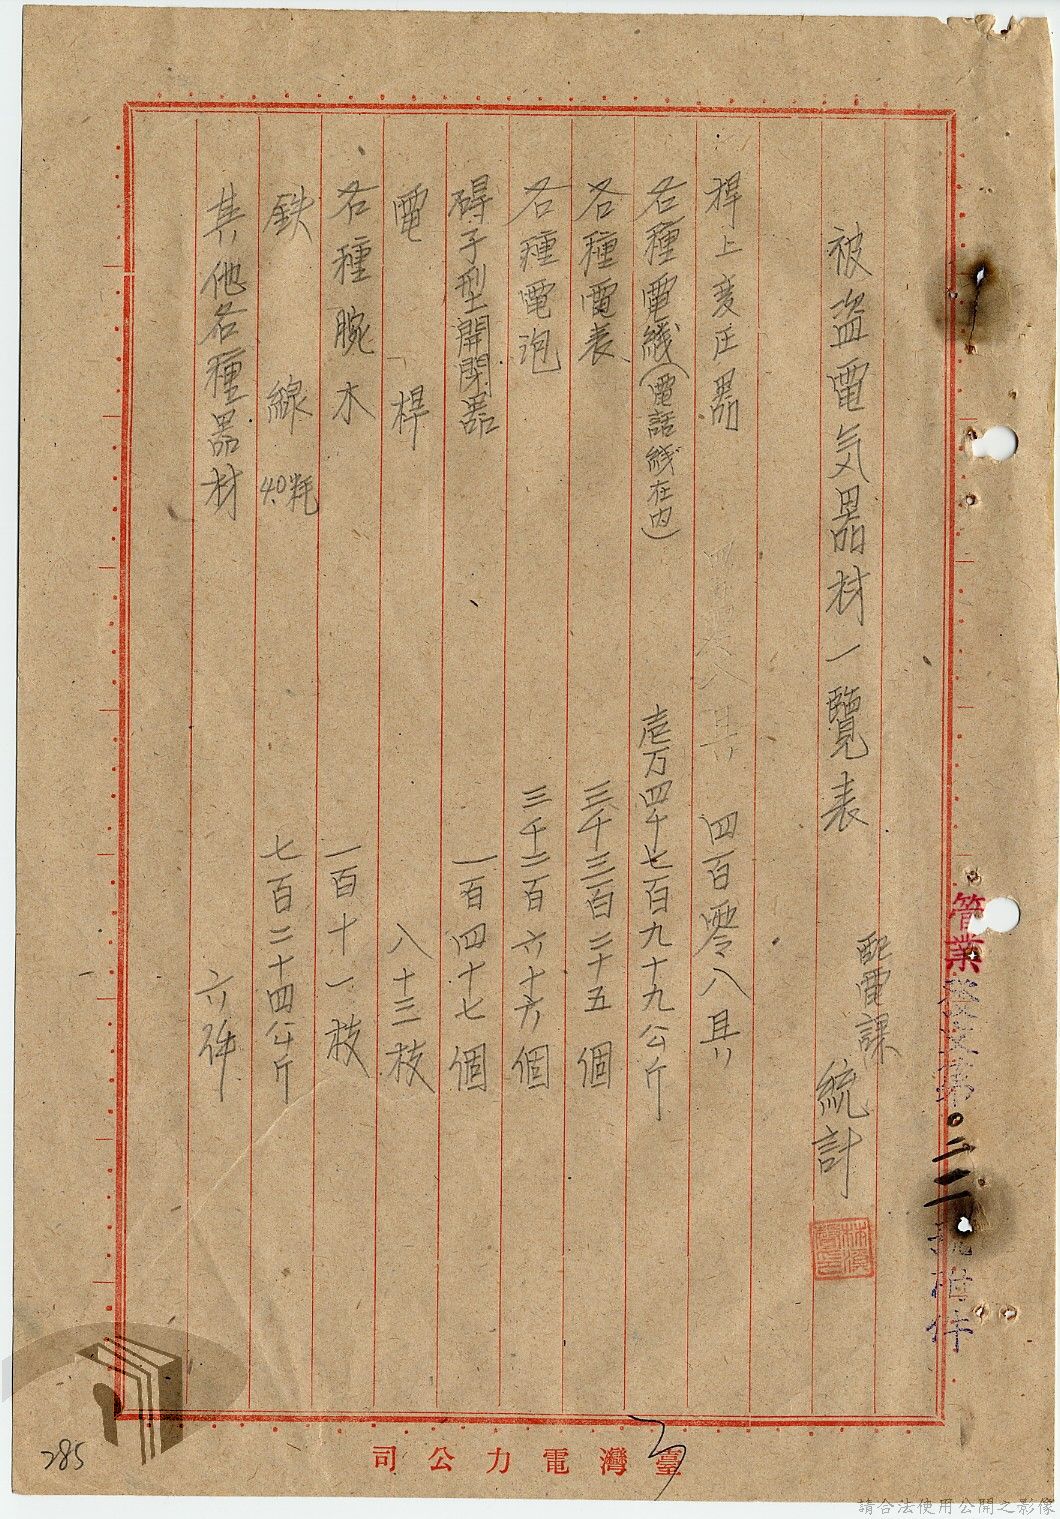 被盜電気器材一覽表
配電課
統計
桿上変圧器 四百零八具
各種電綫(電話綫在內) 壱万四千七百九十九公斤
各種電表 三千三百二十五個
各種電泡 三千二百六十六個
碍子型開閉器 一百四十七個
電桿 八十三枝
各種腕木 一百十一枝
鉄線 4.0粍 七百二十四公斤
其他各種器材 六件
管業
第〇二二號附件
臺灣電力公司
285
請合法使用公開之影像